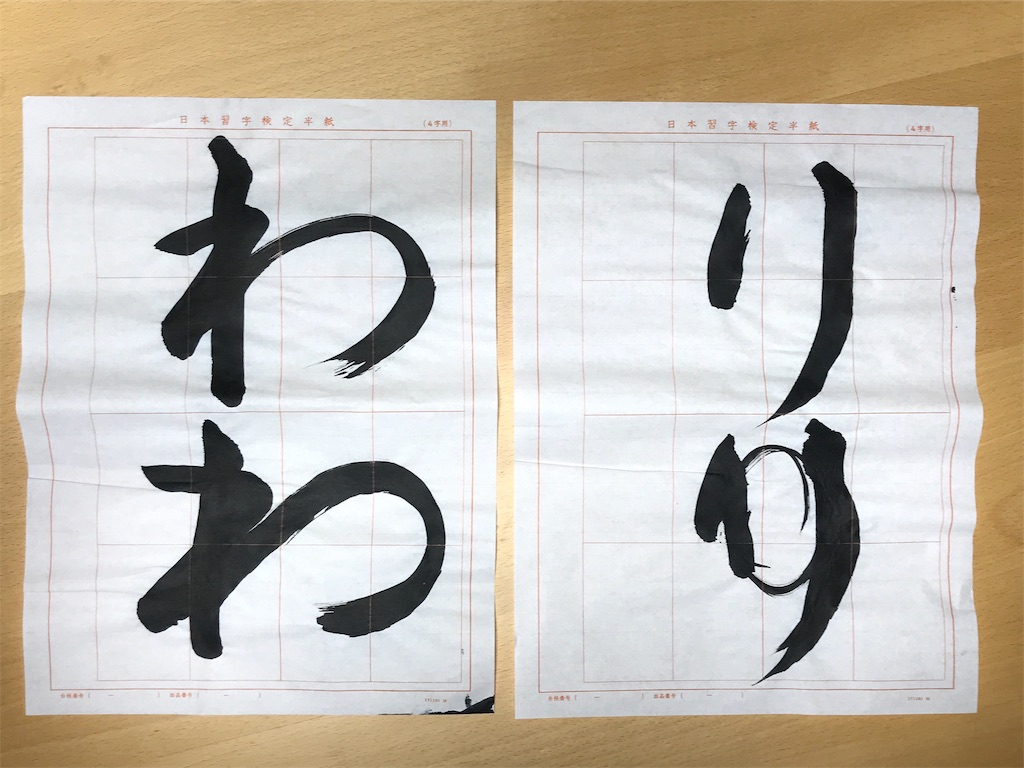 日本習字検定半紙
(4字用)
わ
わ
日本習字検定半紙
(4字用)
り
り